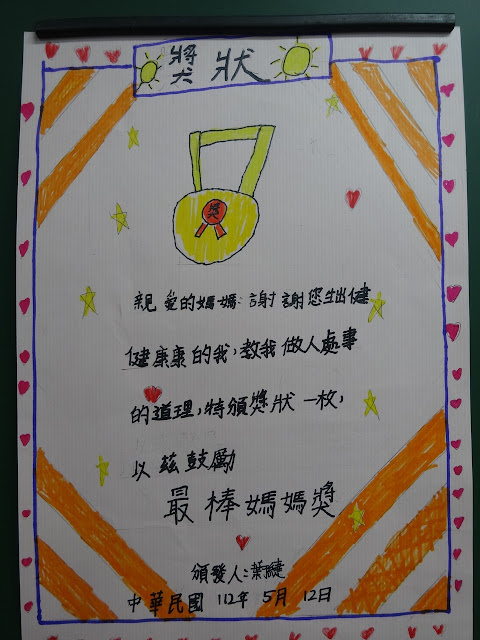 獎狀
獎
親愛的媽媽:謝謝您生出健
健康康的我,教我做人處事
的道理,特頒獎狀一枚,
以茲鼓勵
最棒媽媽獎
頒發人:葉
中華民國 112年 5月 12日